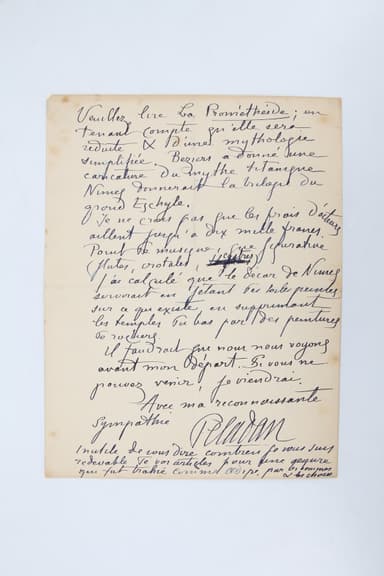 Veuillez lire La Prométhéide ; en
tenant compte qu'elle sera
réduite & d'une mythologie
simplifiée. Béziers a donné une
caricature du mythe titanique
Nimes donnerait la trilogie du
grand Eschyle.
Je ne crois pas que les frais d'acteurs
aillent jusqu'à dix mille francs
Point de musique, que figurative
flutes, crotales,
J'ai calculé que le décor de Nimes
servirait en jetant des toiles peintes
sur ce qui existe en supprimant
les temples du bas par des peintures
de rochers.
Il faudrait que nous nous voyons
avant mon départ. Si vous ne
pouvez venir, je viendrai.
Avec ma reconnaissante
Sympathie
Peladan
Inutile de vous dire combien je vous suis
redevable de vos articles pour une œuvre
qui fut trahie comme Œdipe, par les hommes
& les choses